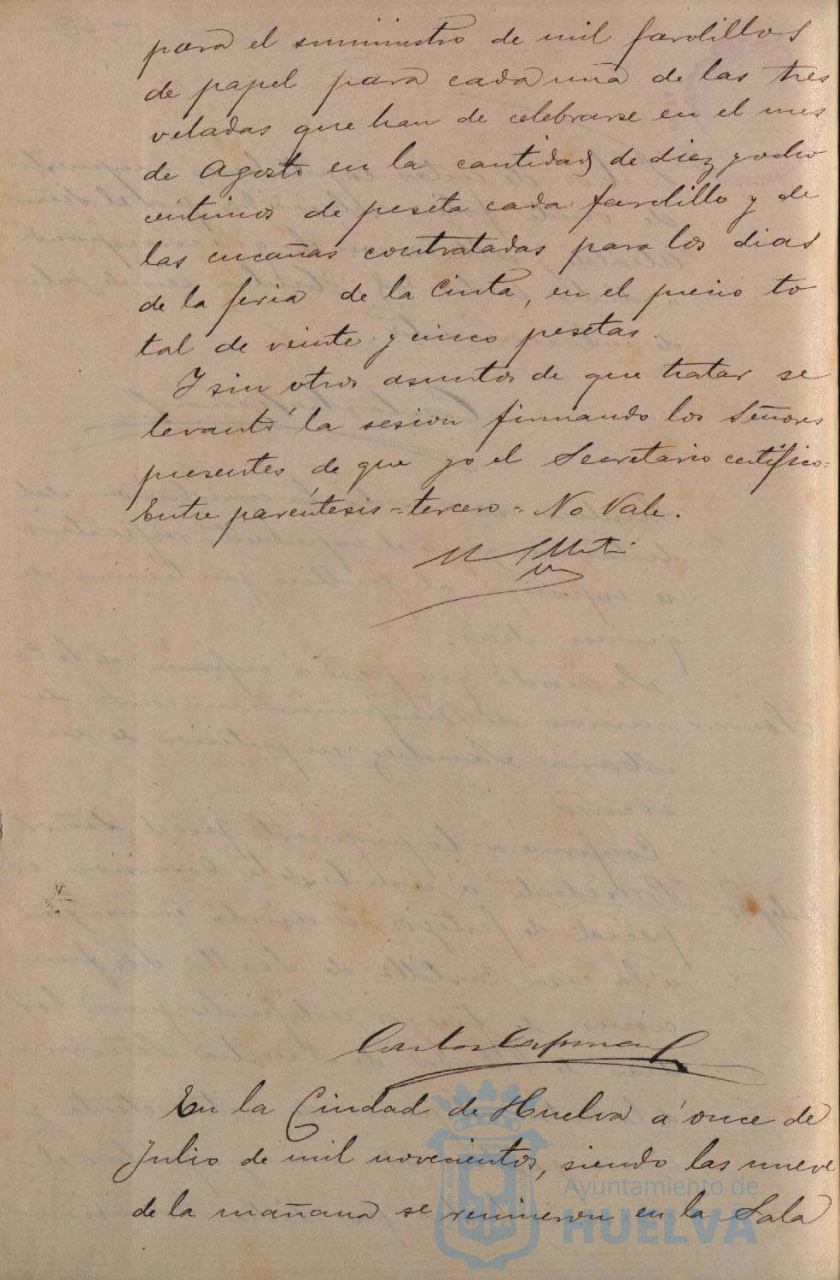 para el suministro de mil farolillos
de papel para cada una de las tres
veladas que han de celebrarse en el mes
de Agosto en la cantidad de diez y ocho
centimos de peseta cada farolillo y de
las cucañas contratadas para los dias
de la feria de la Cinta, en el precio to
tal de veinte y cinco pesetas.
Y sin otros asuntos de que tratar se
levantó la sesion firmando los Señores
presentes de que yo el Secretario certifico=
Entre paréntesis = tercero = No Vale.
En la Ciudad de Huelva á once de
Julio de mil novecientos, siendo las nueve
de la mañana se reunieron en la Sala
Ayuntamiento de
HUELVA